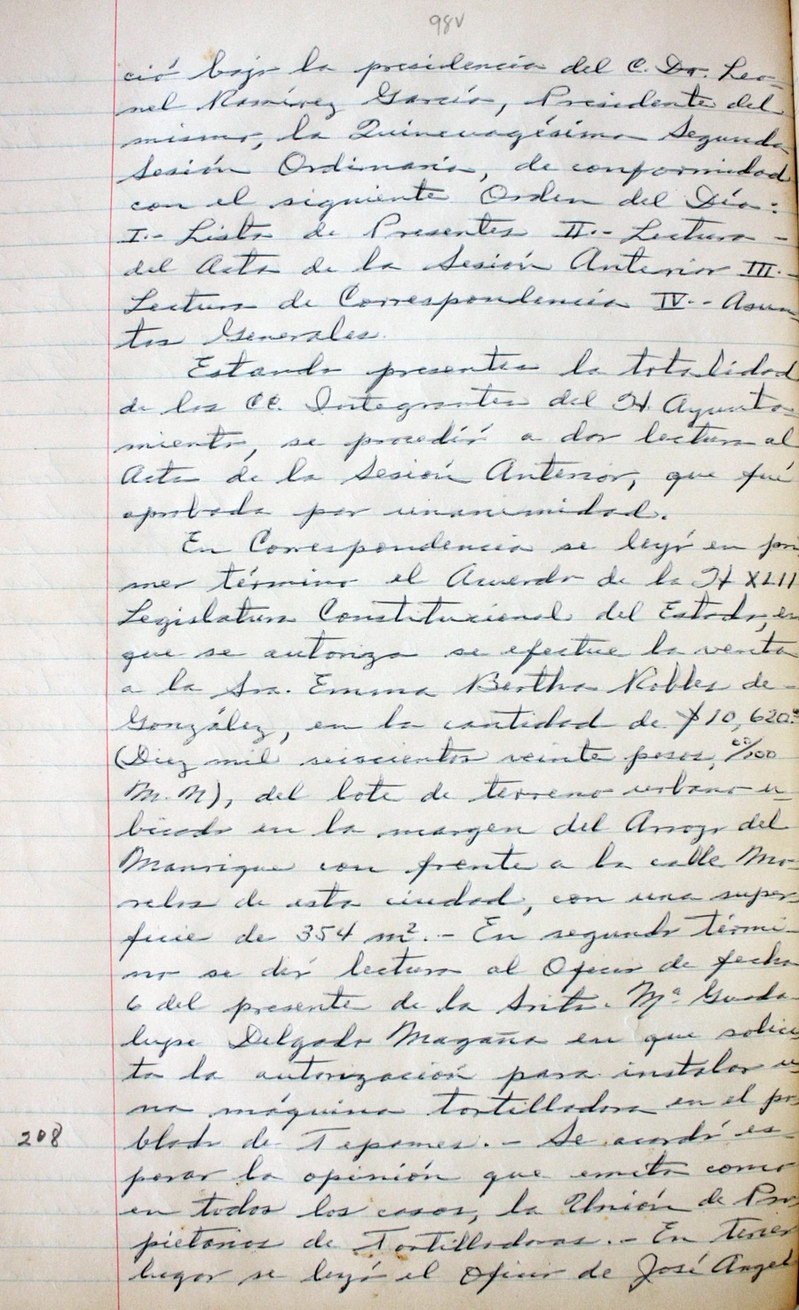 98v
ció bajo la presidencia del C. Dr. Leo-
nel Ramírez García, Presidente del
mismo, la Quincuagésima Segunda
Sesión Ordinaria, de conformidad
con el siguiente Orden del Día:
I.- Lista de Presentes II.- Lectura -
del Acta de la Sesión Anterior III.-
Lectura de Correspondencia IV.- Asun-
tos Generales.
Estando presentes la totalidad
de los CC. Integrantes del H. Ayunta-
miento, se procedió a dar lectura al
Acta de la Sesión Anterior, que fué
aprobada por unanimidad.
En Correspondencia se leyó en pri
mer término el Acuerdo de la H XLII
Legislatura Constitucional del Estado, en
que se autoriza se efectue la venta
a la Sra. Emma Bertha Robles de -
González, en la cantidad de $10,620.00
(Diez mil seiscientos veinte pesos, 00/100
M.N), del lote de terreno urbano u-
bicado en la margen del Arroyo del
Manrique con frente a la calle Mo-
relos de esta ciudad, con una super
ficie de 354 m².- En segundo térmi-
no se dió lectura al Oficio de fecha
6 del presente de la Srita. Mª Guada-
lupe Delgado Magaña en que solici
ta la autorización para instalar u
na máquina tortilladora en el po
208 blado de Tepames.- Se acordó es-
perar la opinión que emita como
en todos los casos, la Unión de Pro
pietarios de Tortilladoras.- En tercer
lugar se leyó el Oficio de José Angel